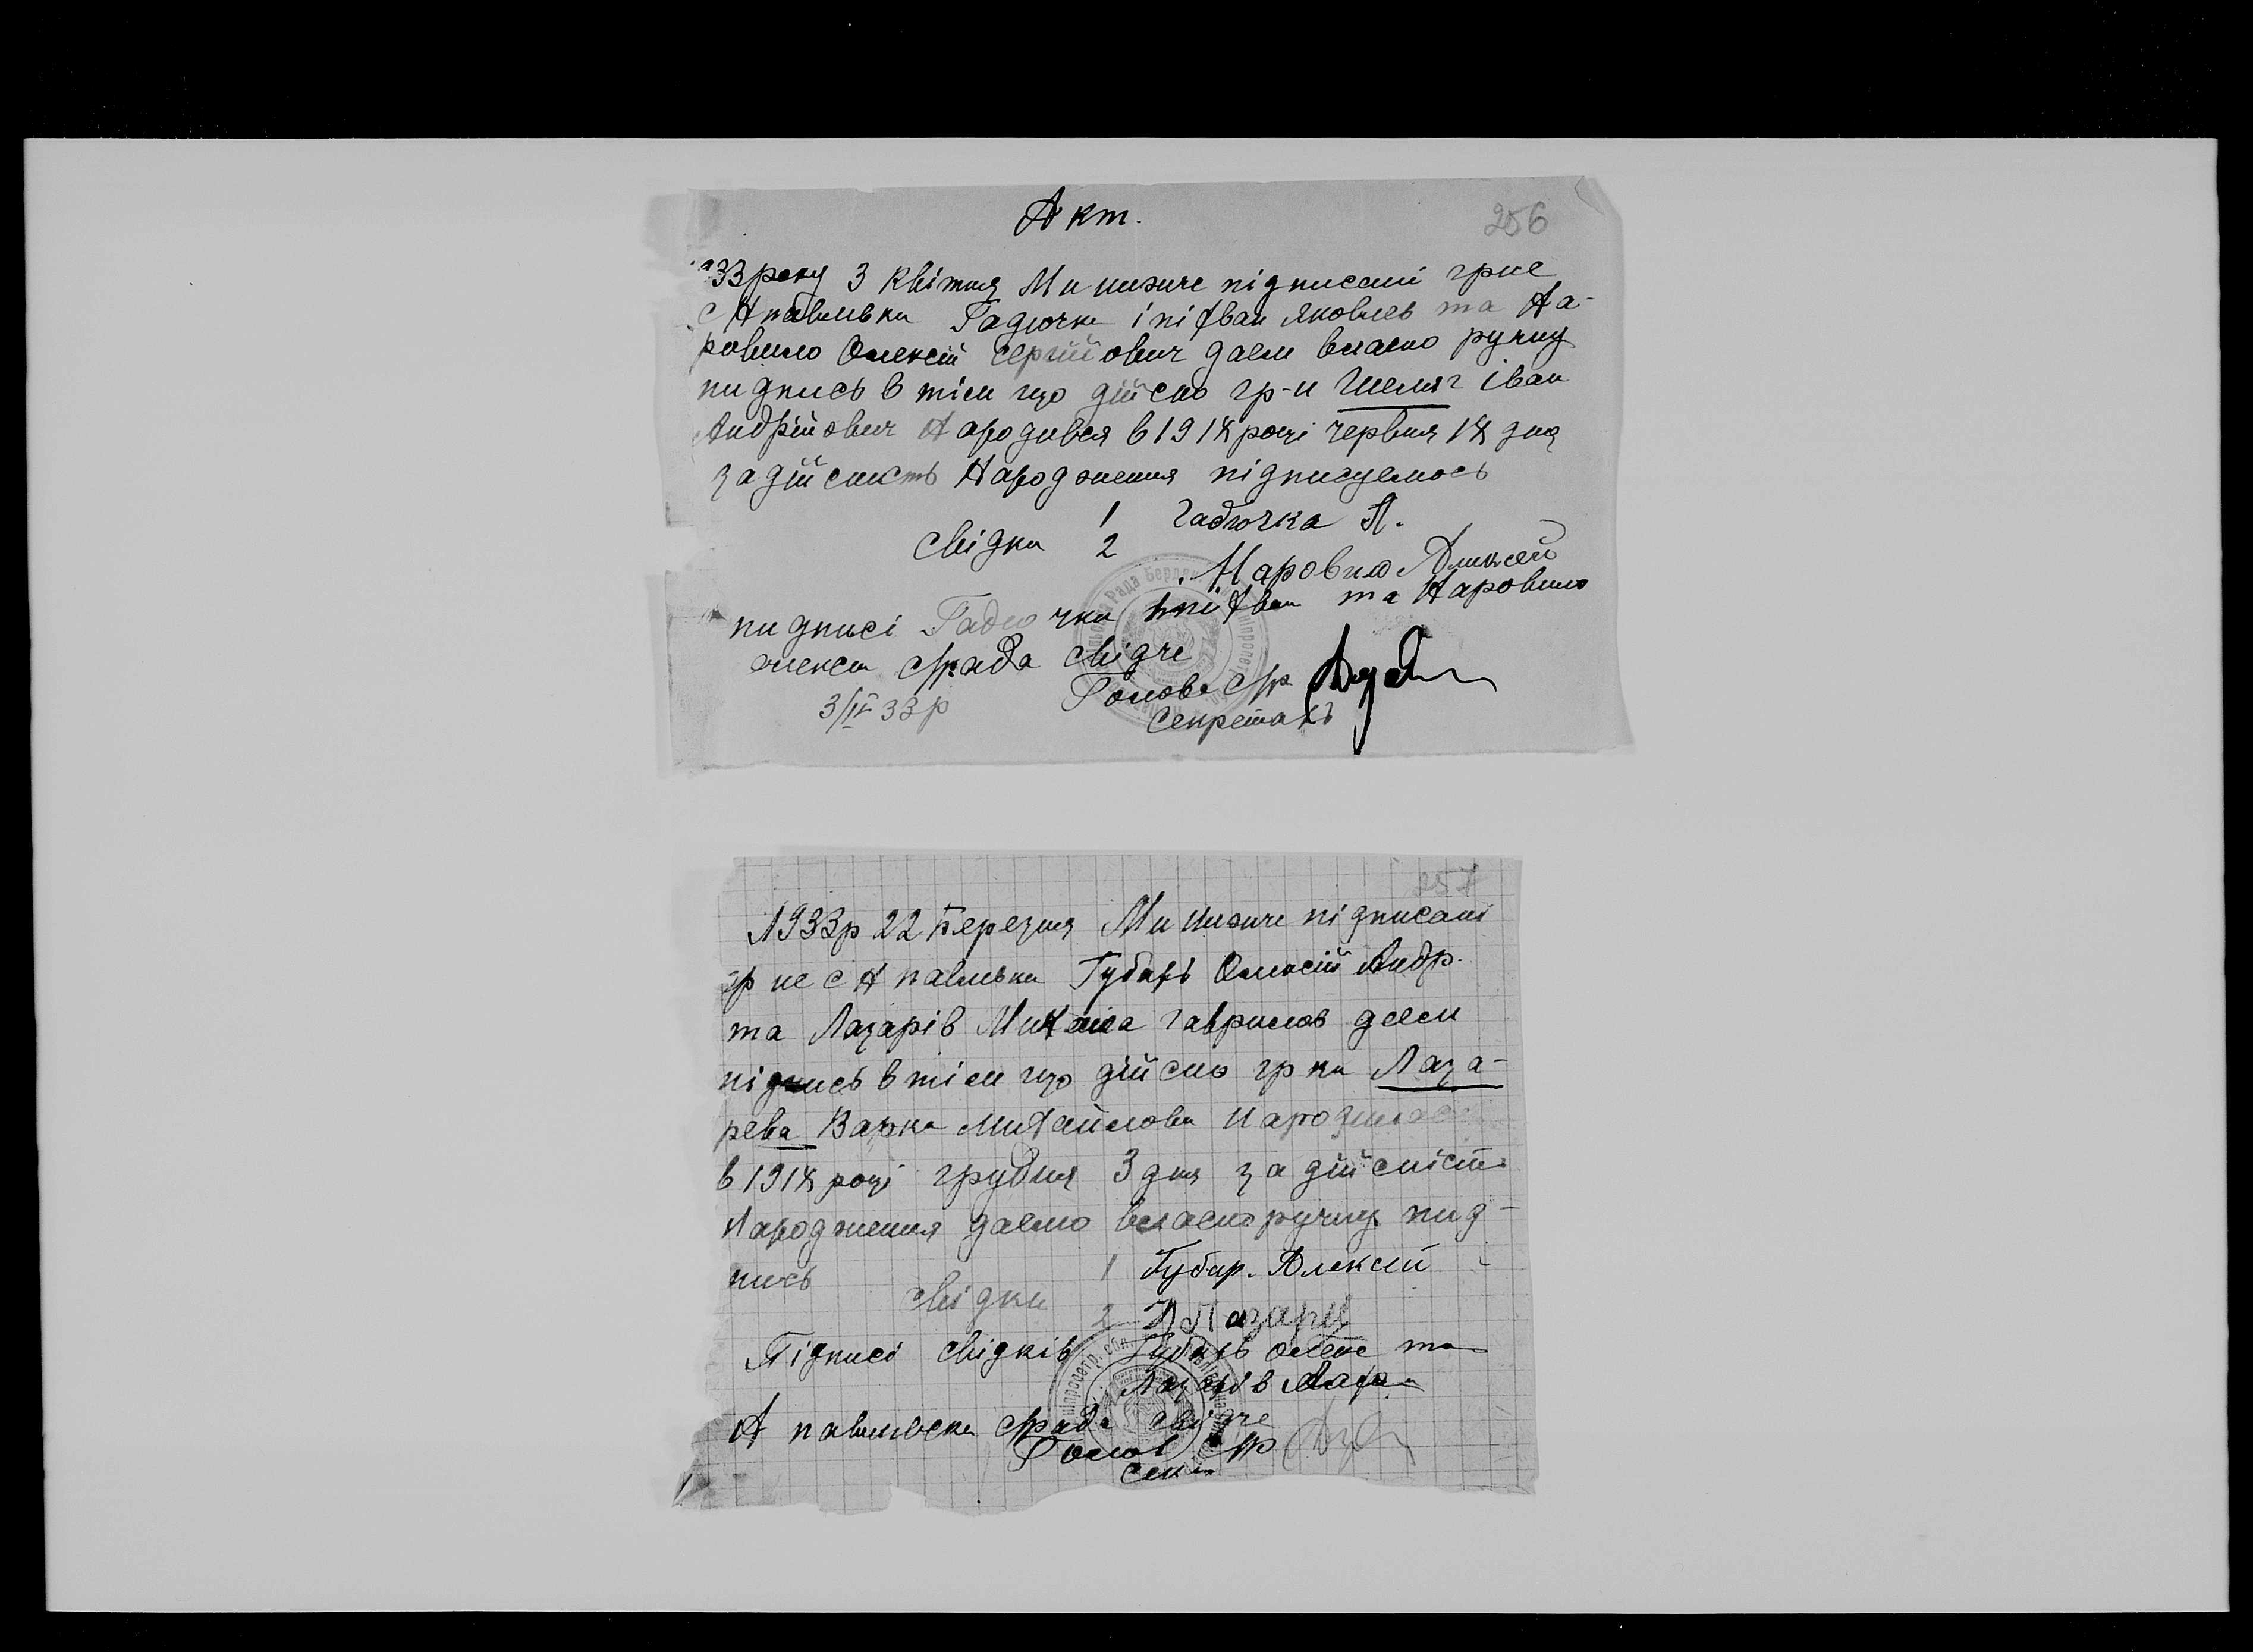 Акт.
256
933 року 3 Квітня Ми нижче підписані гр-не
с Н павлівки Гадючка Іван Яковлев та На-
ровило Олексій Сергійович даем власно ручну
пидпись в тім що дійсно гр-н Шеляг Іван
Андрійович Народився в 1918 році червня 18 дня
за дійсність Народження підписуемось
свідки 1 Гадючка Я.
2 Наровило Алексей
пидписі Гадючки Іван та Наровило
олекси с/рада свідче
Голова с/р
3/IV 33 р
секретарь
257
1933р 22 Березня Ми Нижче підписані
гр не с Н павлівки Губарь Олексій Андр.
та Лазарів Михайла Гаврилов даем
підпись в тім що дійсно гр ка Лаза-
рева Варка Михайлова Народилась
в 1918 році грудня 3 дня за дійсність
Народження даемо власноручну пид-
пись
свідки 1 Губар. Алексей
2 Лазарів
Підписі свідків Губарь олекс та
Лазарів
Н павлівска с/рада свідче
Голов с/р
секр